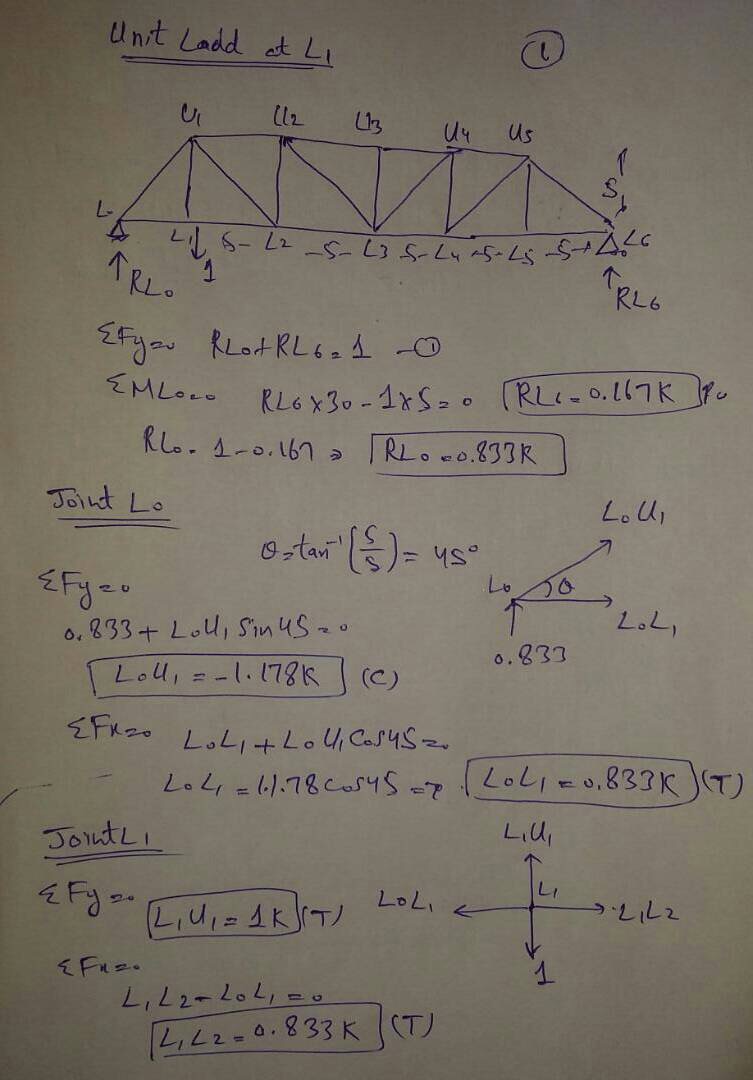 Unit Load at L1 ①
U1 U2 U3 U4 U5
L0 L1 5- L2 -5- L3 5- L4 -5- L5 -5- L6 5
↑ RL0 ↓ 1 ↑ RL6
ΣFy=0 RL0+RL6=1 -①
ΣML0=0 RL6×30-1×5=0 RL6=0.167K
RL0=1-0.167 ⇒ RL0=0.833K
Joint L0
θ=tan⁻¹(5/5)=45° L0U1
ΣFy=0 L0 θ
0.833+L0U1 Sin45=0 L0L1
L0U1=-1.178K (C) 0.833
ΣFx=0 L0L1+L0U1Cos45=0
L0L1=1.178cos45=> L0L1=0.833K (T)
Joint L1 L1U1
ΣFy=0 L1U1=1K (T) L0L1 L1 L1L2
ΣFx=0 1
L1L2-L0L1=0
L1L2=0.833K (T)